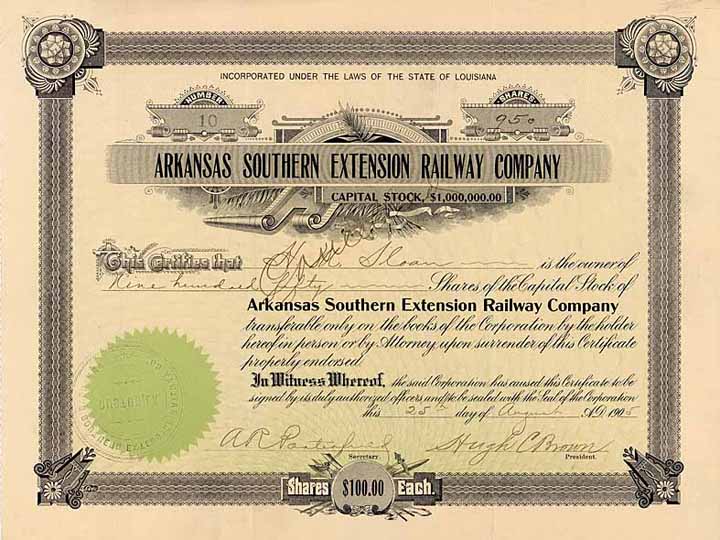 INCORPORATED UNDER THE LAWS OF THE STATE OF LOUISIANA
NUMBER
10
SHARES
950
ARKANSAS SOUTHERN EXTENSION RAILWAY COMPANY
CAPITAL STOCK, $1,000,000.00
This Certifies that H. M. Sloan is the owner of
Nine hundred fifty Shares of the Capital Stock of
Arkansas Southern Extension Railway Company
transferable only on the books of the Corporation by the holder
hereof in person or by Attorney, upon surrender of this Certificate
properly endorsed.
In Witness Whereof, the said Corporation has caused this Certificate to be
signed by its duly authorized officers and to be sealed with the Seal of the Corporation
this 25th day of August A.D. 1905
A R Hugh C Brown
Secretary. President.
Shares $100.00 Each.